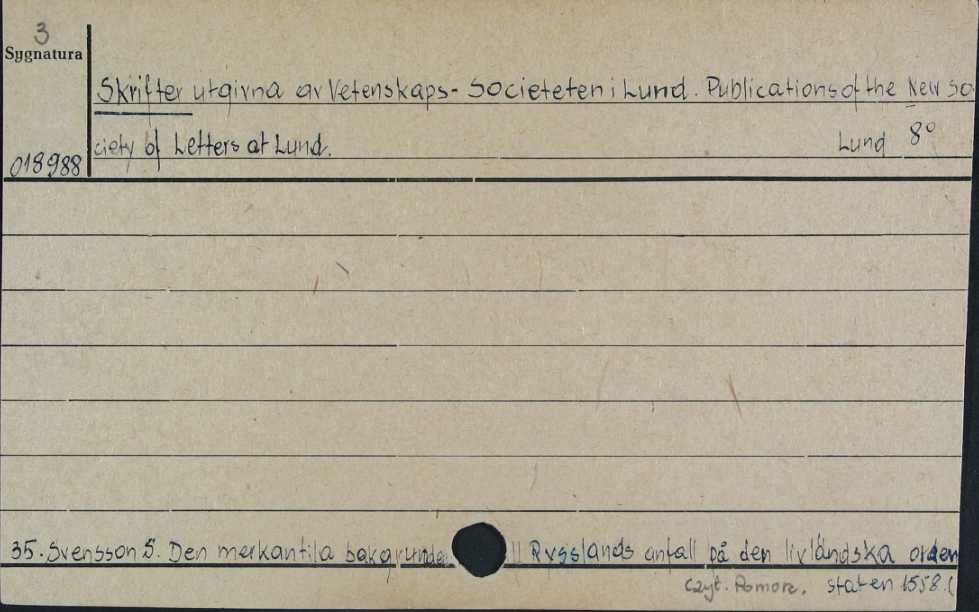 3
Sygnatura
Skrifter utgivna av Vetenskaps-Societeten i Lund. Publications of the New So
ciety of Letters at Lund. Lund 8°
018988
35. Svensson S. Den merkantila bakgrunden ll Rysslands anfall på den livländska orden
czyt. Pomorz. staten 1558. (